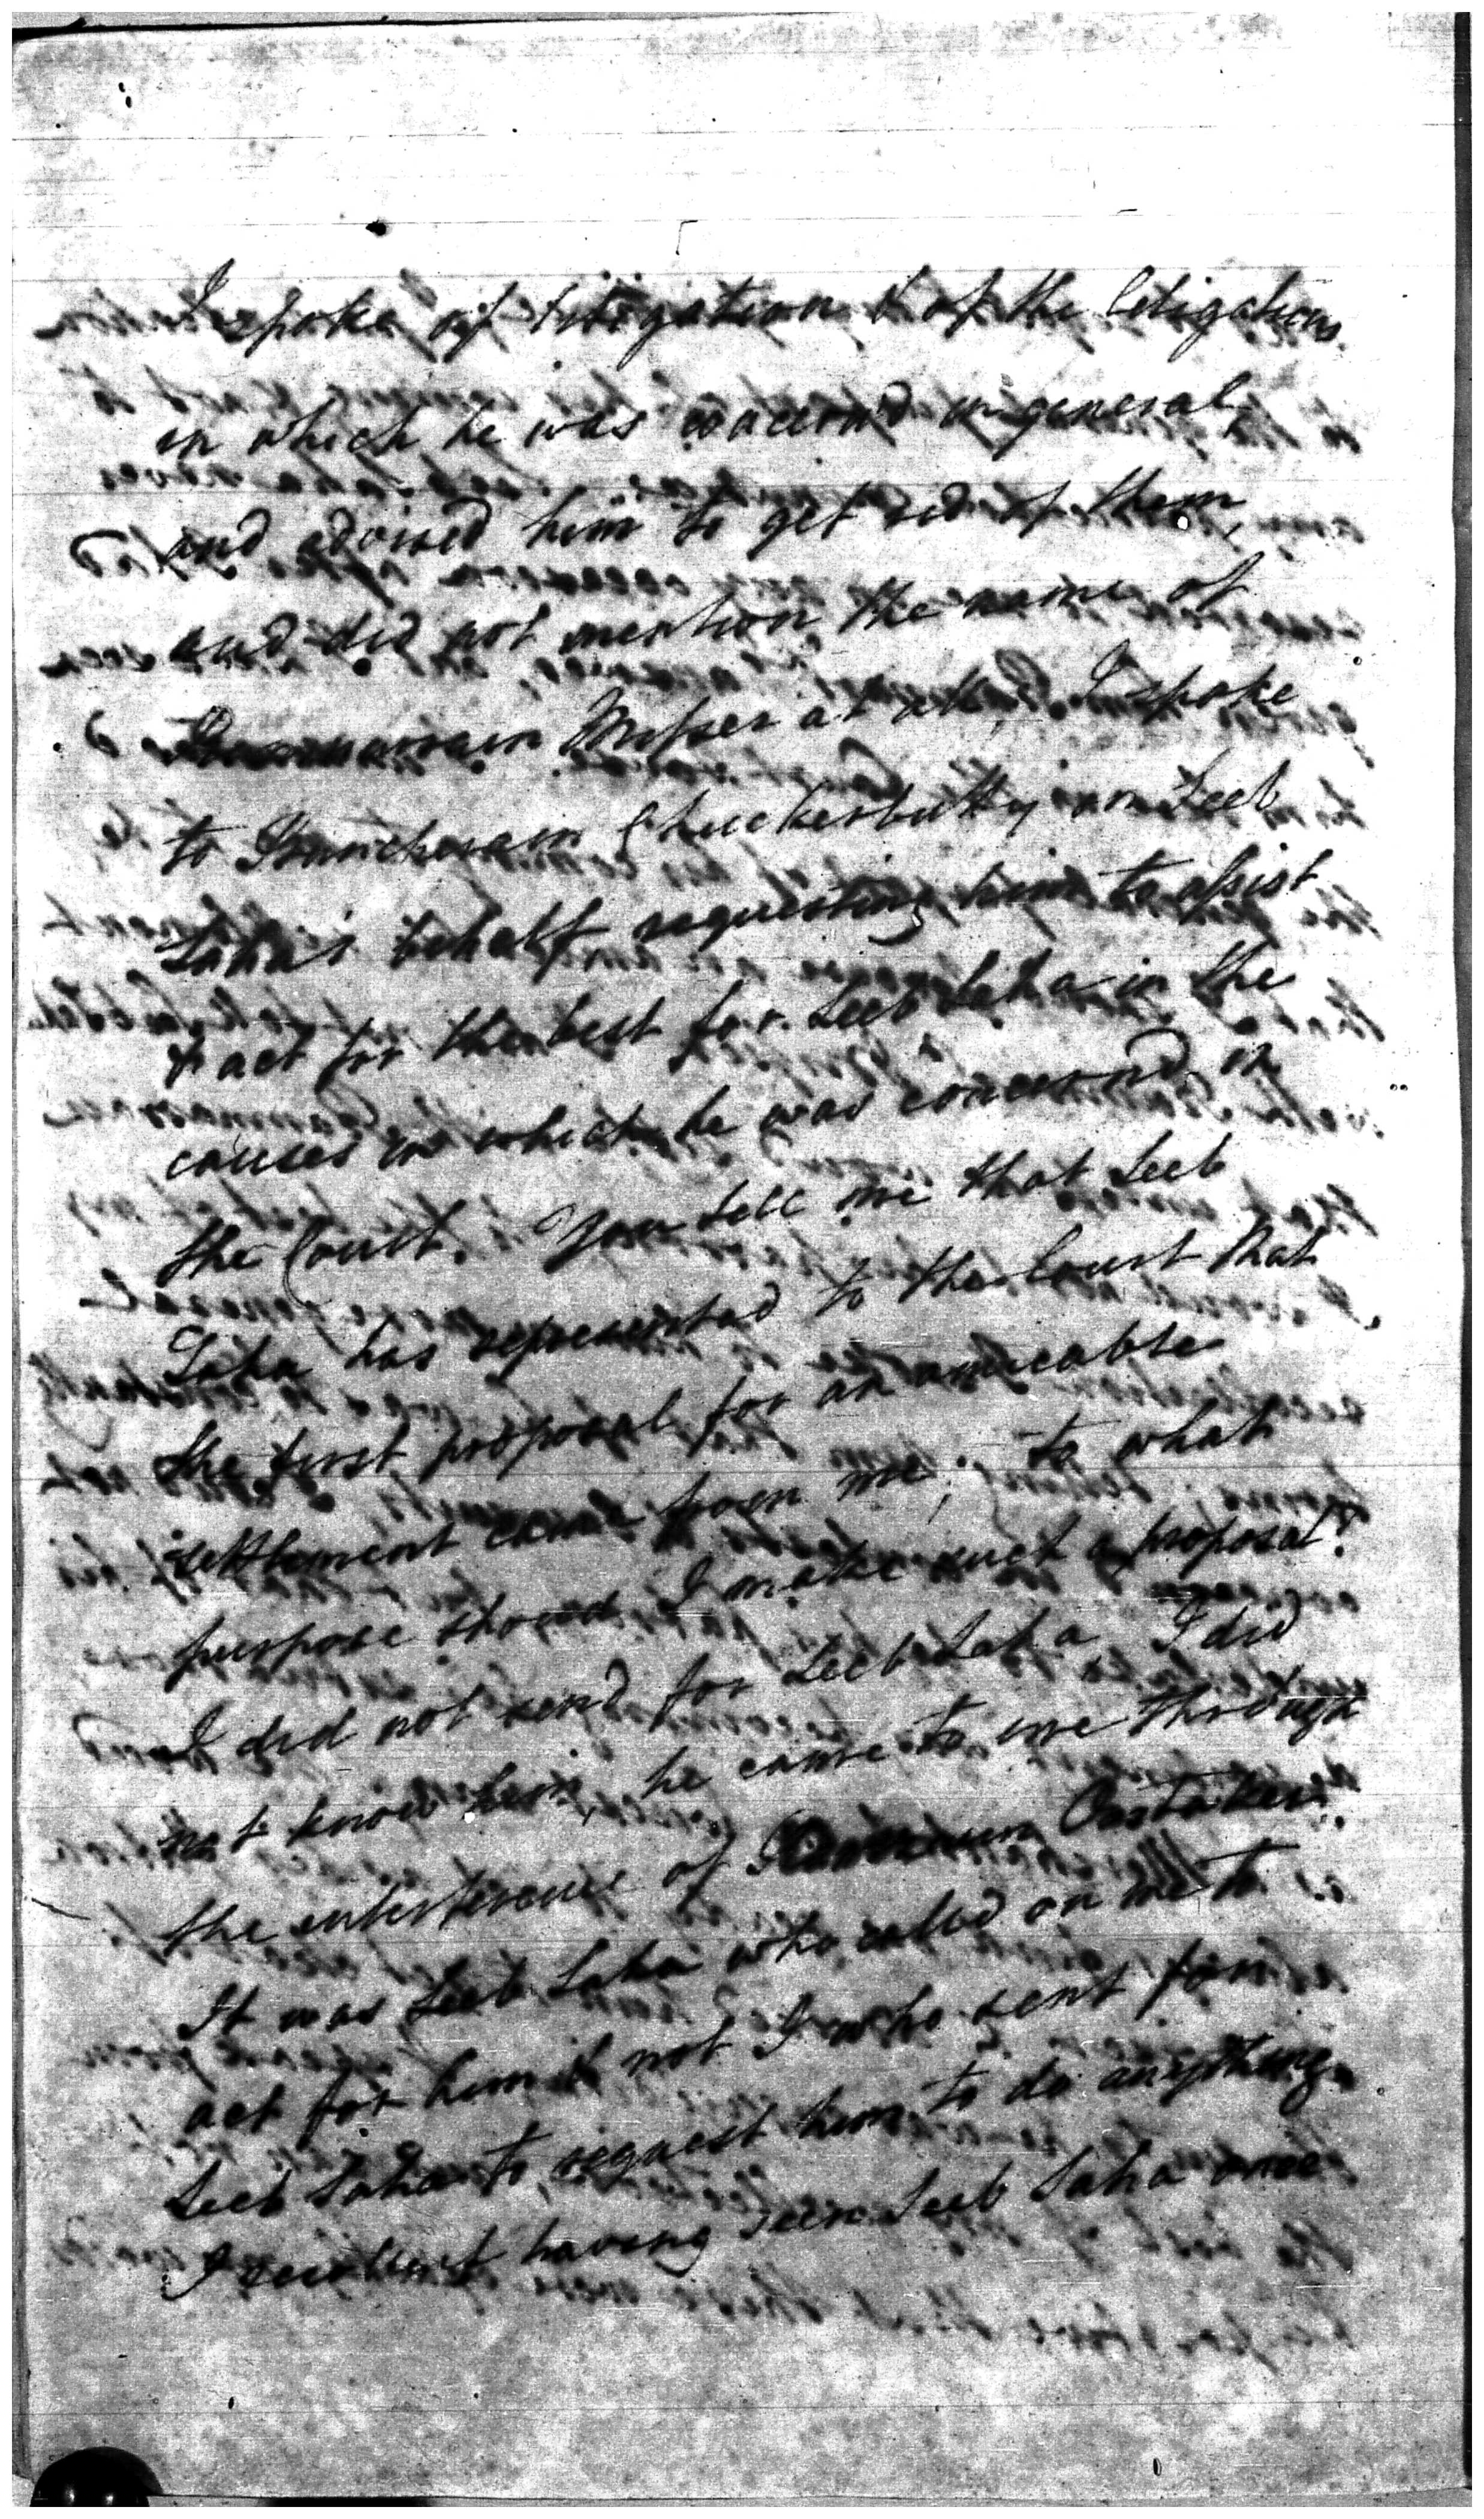 I spoke of litigation & of the litigations
in which he was concernd in general,
and advised him to get rid of them,
and did not mention the name of
Misser at all, I spoke
to Bancheram Chuckerbutty on Seeb
Saha's behalf requesting him to assist
& act for the best for Seeb Saha in the
causes in which he was concernd in
the Court. You tell me that Seeb
Saha has represented to the Court that
the first proposal for an amicable
settlement came from me; to what
purpose should I make such a proposal?
I did not send for Seeb Saha, I did
not know him, he came to me through
the interference of
It was Seeb Saha who called on me to
act for him & not I who sent for
Seeb Saha to request him to do anything.
I recollect having seen Seeb Saha once